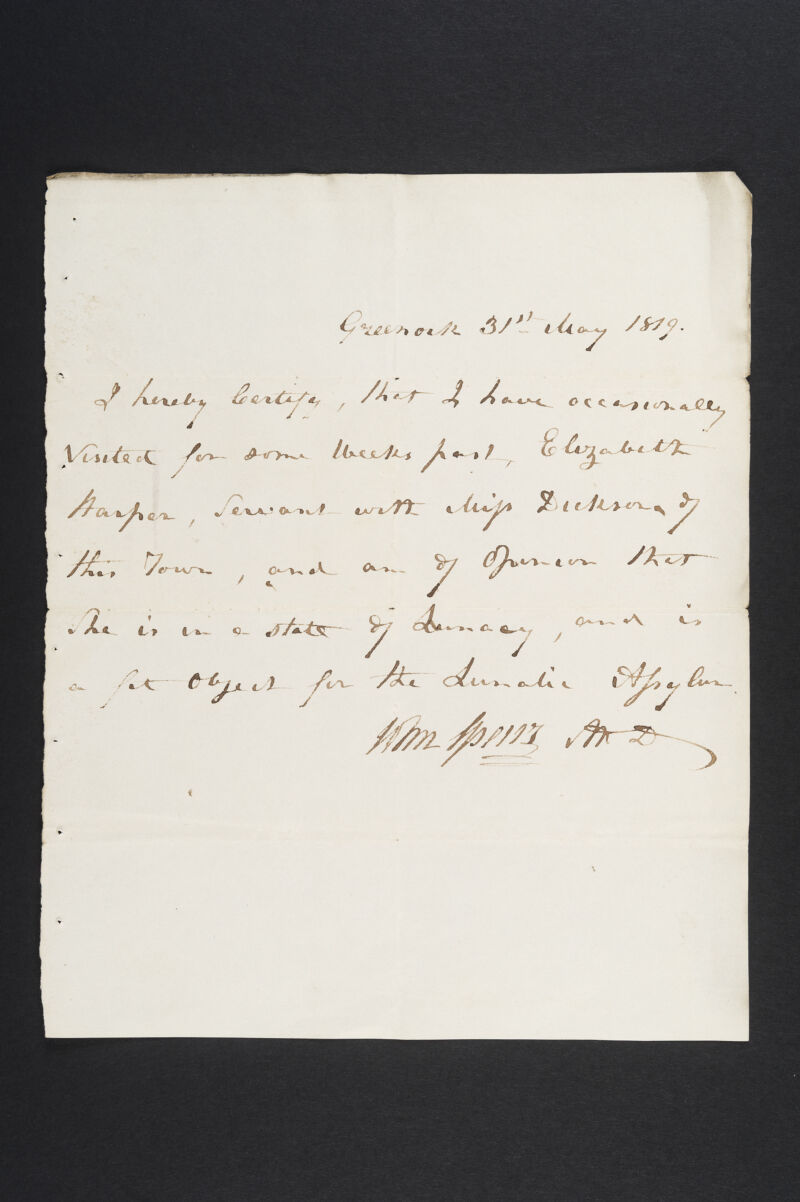 Greenock 31st May 1819.
I hereby Certify, that I have occasionally
Visited for some Weeks past, Elizabeth
Harper, Servant with Miss Dickson of
this Town, and am of Opinion that
She is in a state of Lunacy, and is
a fit Object for the Lunatic Assylum.
Wm Speirs MD